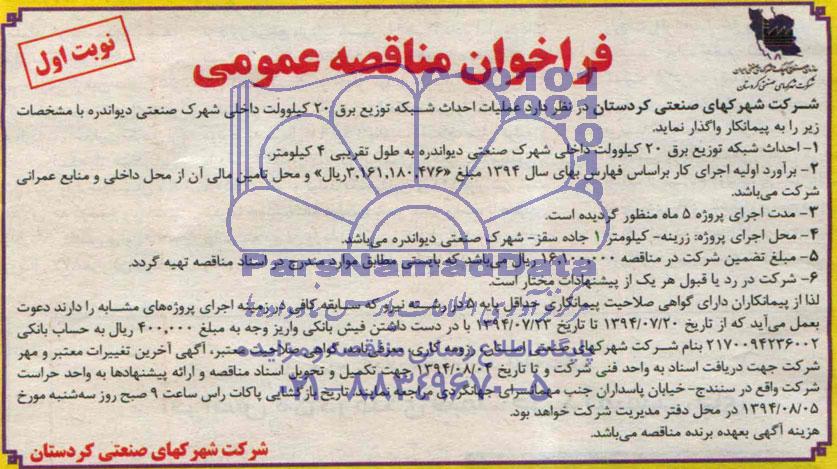 نوبت اول
فراخوان مناقصه عمومی
شرکت شهرکهای صنعتی کردستان
شرکت شهرکهای صنعتی کردستان در نظر دارد عملیات احداث شبکه توزیع برق ۲۰ کیلوولت داخلی شهرک صنعتی دیواندره با مشخصات
زیر را به پیمانکار واگذار نماید.
۱- احداث شبکه توزیع برق ۲۰ کیلوولت داخلی شهرک صنعتی دیواندره به طول تقریبی ۴ کیلومتر.
۲- برآورد اولیه اجرای کار براساس فهارس بهای سال ۱۳۹۴ مبلغ «۳،۱۶۱،۱۸۰،۴۷۶ریال» و محل تامین مالی آن از محل داخلی و منابع عمرانی
شرکت می‌باشد.
۳- مدت اجرای پروژه ۵ ماه منظور گردیده است.
۴- محل اجرای پروژه: زرینه- کیلومتر ۱ جاده سقز- شهرک صنعتی دیواندره می‌باشد.
۵- مبلغ تضمین شرکت در مناقصه ۱۶،۱۰۰،۰۰۰ ریال می‌باشد که بایستی مطابق موارد مندرج در اسناد مناقصه تهیه گردد.
۶- شرکت در رد یا قبول هر یک از پیشنهادات مختار است.
لذا از پیمانکاران دارای گواهی صلاحیت پیمانکاری حداقل پایه ۵ در رشته نیرو که سابقه کافی در زمینه اجرای پروژه‌های مشابه را دارند دعوت
بعمل می‌آید که از تاریخ ۱۳۹۴/۰۷/۲۰ تا تاریخ ۱۳۹۴/۰۷/۲۳ با در دست داشتن فیش بانکی واریز وجه به مبلغ ۴۰۰،۰۰۰ ریال به حساب بانکی
۲۱۷۰۰۹۴۲۳۶۰۰۲ بنام شرکت شهرکهای صنعتی رزومه کاری، معرفی‌نامه، گواهی صلاحیت معتبر، آگهی آخرین تغییرات معتبر و مهر
شرکت جهت دریافت اسناد به واحد فنی شرکت و تا تاریخ ۱۳۹۴/۰۸/۰۴ جهت تکمیل و تحویل اسناد مناقصه و ارائه پیشنهادها به واحد حراست
شرکت واقع در سنندج- خیابان پاسداران جنب مهمانسرای جهانگردی مراجعه نمایند. تاریخ بازگشایی پاکات راس ساعت ۹ صبح روز سه‌شنبه مورخ
۱۳۹۴/۰۸/۰۵ در محل دفتر مدیریت شرکت خواهد بود.
هزینه آگهی بعهده برنده مناقصه می‌باشد.
شرکت شهرکهای صنعتی کردستان
ParsNamadData
پایگاه اطلاع رسانی مناقصه و مزایده
۰۲۱-۸۸۳۴۹۶۷۰-۵